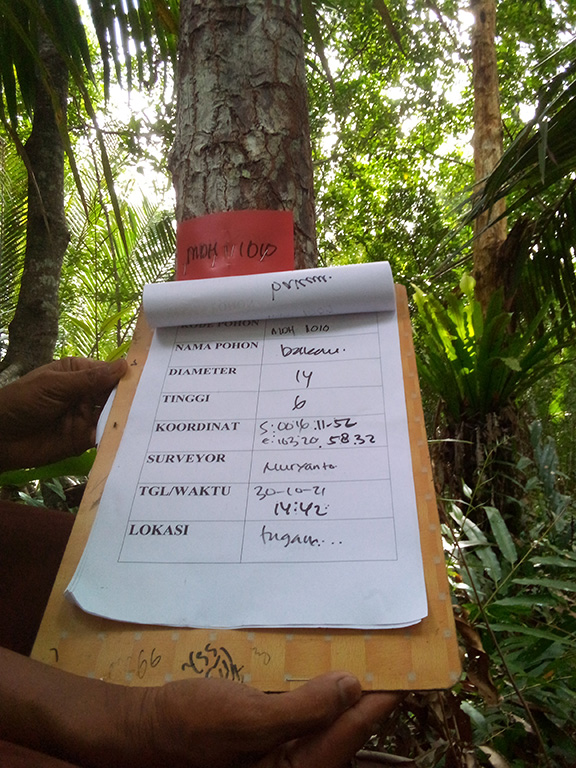 MDH 1010
KODE POHON MDH 1010
NAMA POHON bakau.
DIAMETER 14
TINGGI 6
KOORDINAT S:0046.11.52
E:103.20.58.32
SURVEYOR Nuryanto
TGL/WAKTU 30-10-21
14:42
LOKASI
66